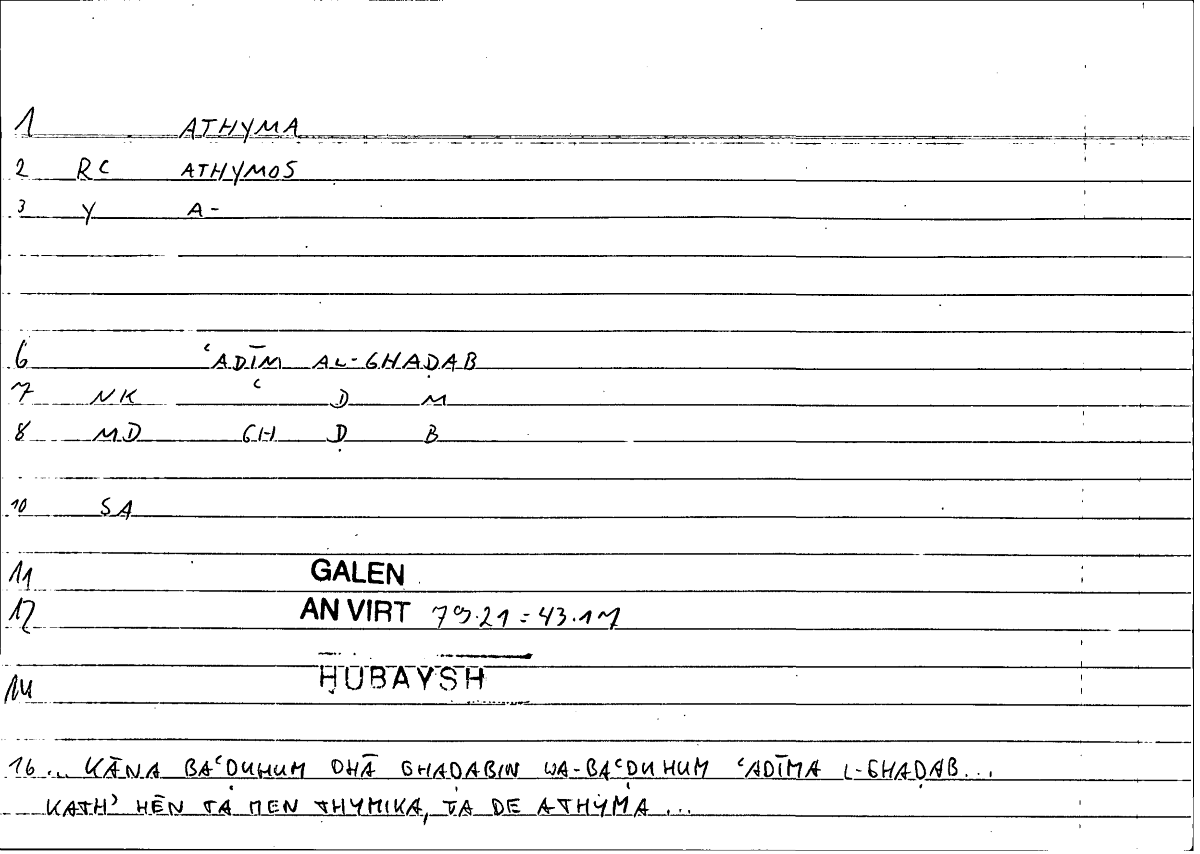 1 ATHYMA
2 RC ATHYMOS
3 Y A-
6 ʿADĪM AL-GHAḌAB
7 NK ʿ D M
8 MD GH Ḍ B
10 SA
11 GALEN
12 AN VIRT 79.21 = 43.17
14 ḤUBAYSH
16 ... KĀNA BAʿḌUHUM DHĀ GHAḌABIN WA-BAʿḌUHUM ʿADĪMA L-GHAḌAB...
KATH' HĒN TA MEN THYMIKA, TA DE ATHYMA ...